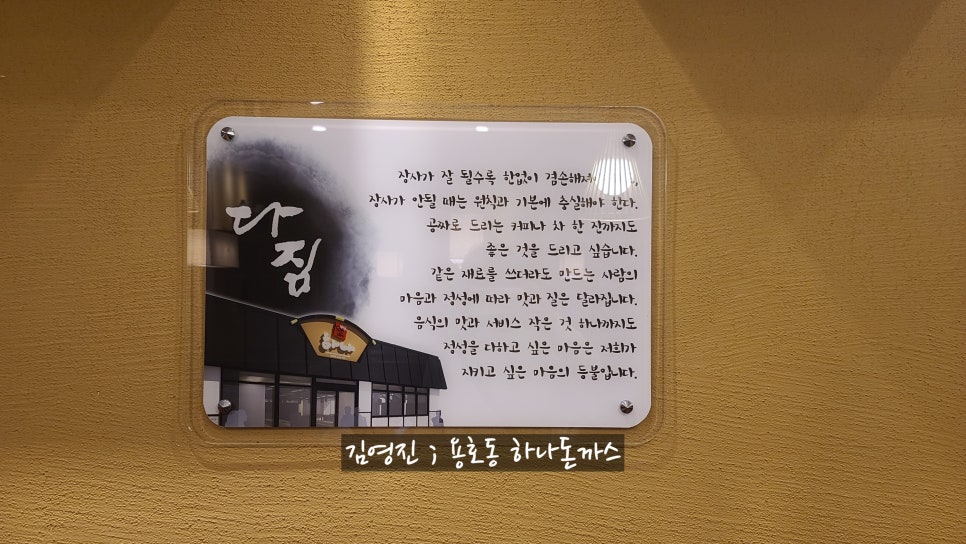 다
집
장사가 잘 될수록 한없이
장사가 안될 때는 원칙과 기본에 충실해야 한다.
공짜로 드리는 커피나 차 한 잔까지도
좋은 것을 드리고 싶습니다.
같은 재료를 쓰더라도 만드는 사람의
마음과 정성에 따라 맛과 질은 달라집니다.
음식의 맛과 서비스 작은 것 하나까지도
정성을 다하고 싶은 마음은 저희가
지키고 싶은 마음의 등불입니다.
하나
김영진 ; 용호동 하나돈까스